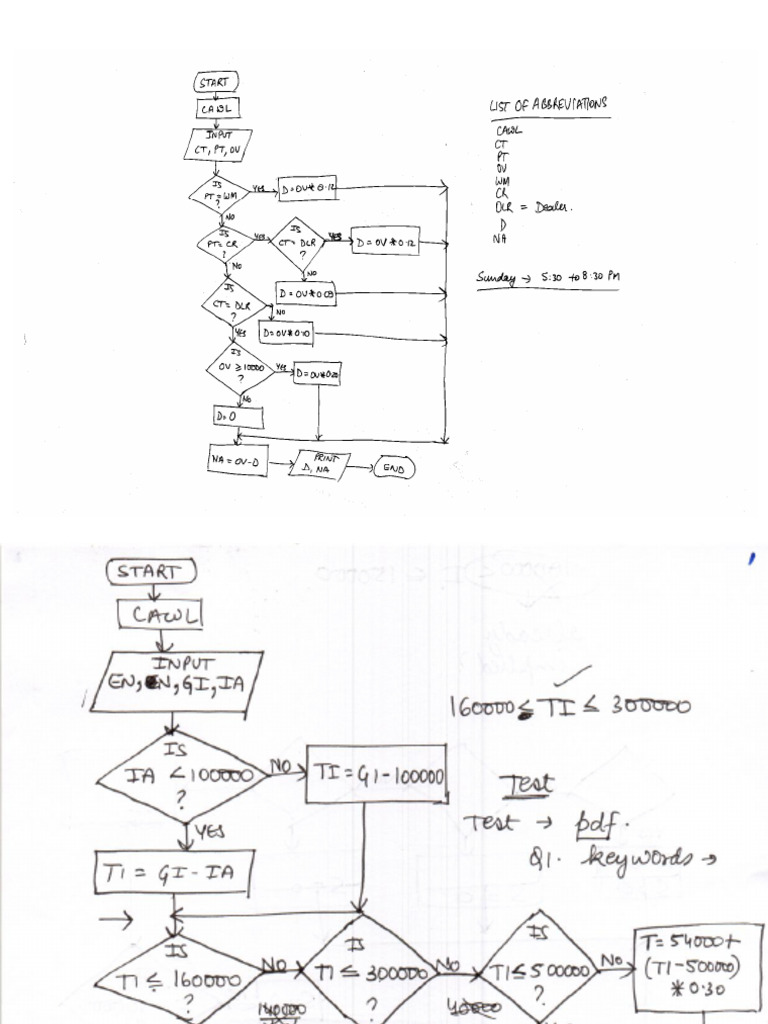 START
CAWL
INPUT
CT, PT, OV
IS
PT = WM
?
YES
D = OV * 0.12
NO
IS
PT = CR
?
YES
IS
CT = DLR
?
YES
D = OV * 0.12
NO
NO
D = OV * 0.08
IS
CT = DLR
?
NO
D = OV * 0.10
YES
IS
OV ≥ 10000
?
YES
NO
D = 0
NA = OV - D
PRINT
D, NA
END
LIST OF ABBREVIATIONS
CAWL
CT
PT
OV
WM
CR
DLR = Dealer.
D
NA
Sunday → 5:30 to 8:30 PM
START
CAWL
INPUT
EN, GI, IA
IS
IA < 100000
?
NO
TI = GI - 100000
YES
TI = GI - IA
160000 ≤ TI ≤ 300000
Test
Test → pdf.
Q1. keywords →
IS
TI ≤ 160000
?
NO
140000
IS
TI ≤ 300000
?
NO
IS
TI ≤ 500000
?
NO
T = 54000 +
(TI - 500000)
* 0.30